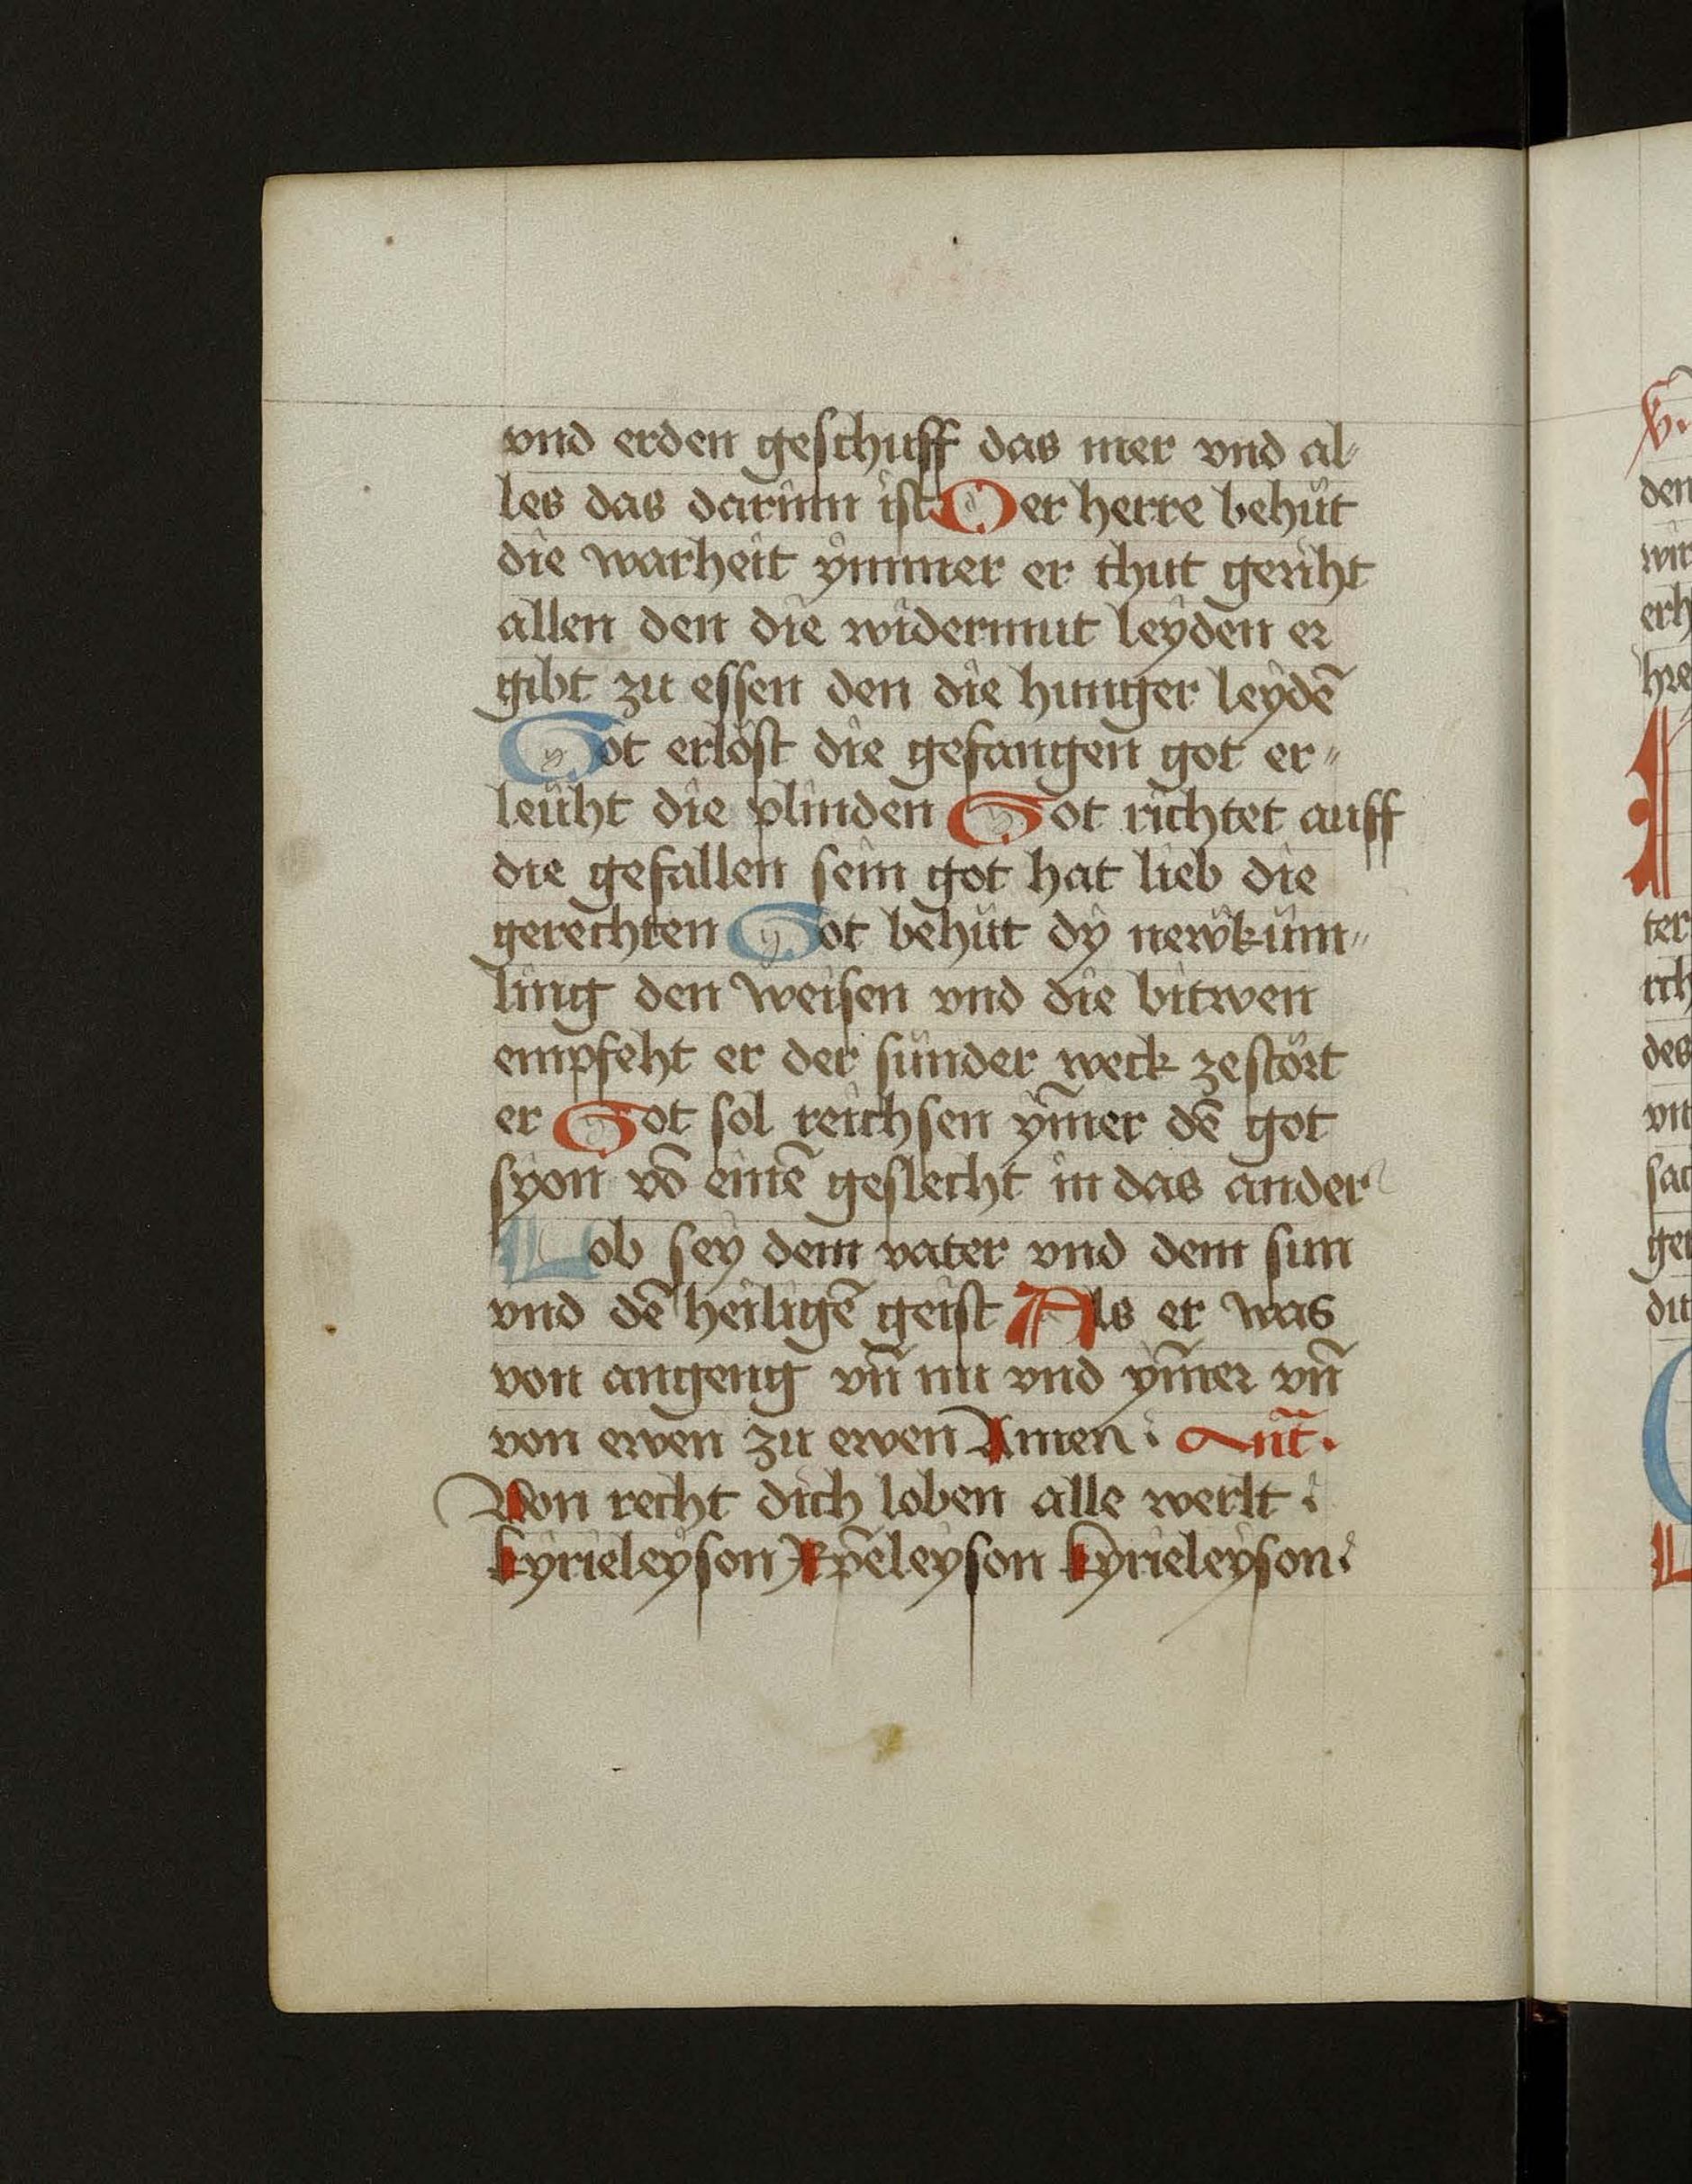 vnd erden geschuff das mer vnd al-
les das darinn ist Der herre behüt
die warheit ÿmmer er thut geriht
allen den die widermut leyden er
gibt zu essen den die hunger leydē
Got erlöst die gefangen got er-
leüht die plinden Got richtet auff
die gefallen sein got hat lieb die
gerechten Got behüt dy newküm-
ling den weisen vnd die bitwen
empfeht er der sünder weck zestört
er Got sol reichsen ym̄er dē got
syon vō einē geslecht in das ander
Lob sey dem vater vnd dem sun
vnd dē heiligē geist Als er was
von angeng vn̄ nu vnd ym̄er vn̄
von ewen zu ewen Amen Ant̄.
Von recht dich loben alle werlt
kyrieleyson Xp̄eleyson kyrieleyson